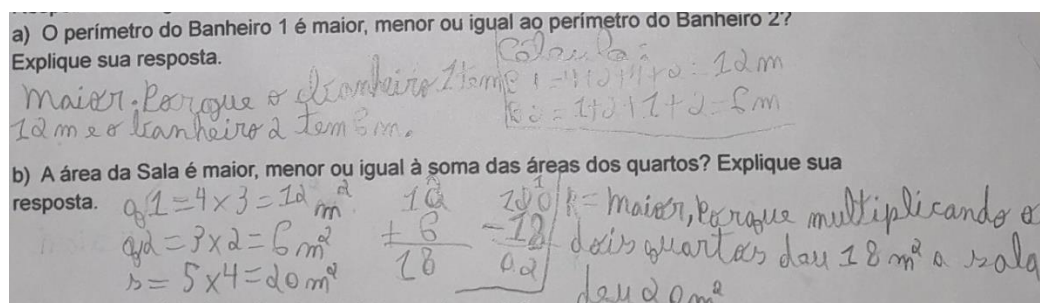 a) O perímetro do Banheiro 1 é maior, menor ou igual ao perímetro do Banheiro 2?
Explique sua resposta.
Maior. Porque o banheiro 1 tem
12m e o banheiro 2 tem 6m.
Cálculo:
B1=4+2+4+2=12m
B2=1+2+1+2=6m
b) A área da Sala é maior, menor ou igual à soma das áreas dos quartos? Explique sua
resposta.
q1=4x3=12m²
q2=3x2=6m²
s=5x4=20m²
12
+6
18
20
-18
02
R=Maior, Porque multiplicando o
dois quartos deu 18m² a sala
deu 20m²